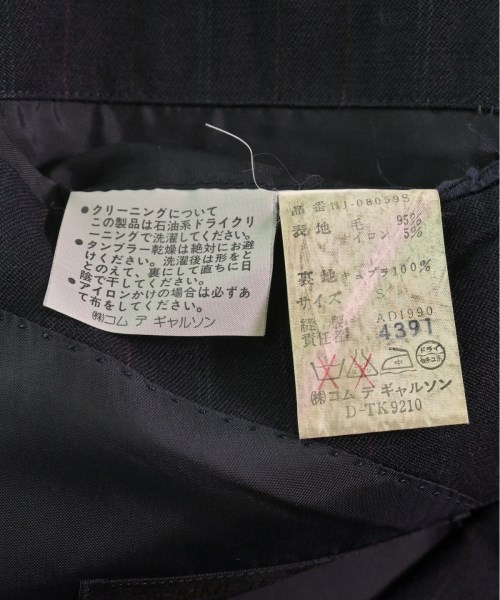 ●クリーニングについて
この製品は石油系ドライクリ
ーニングで洗濯してください。
●タンブラー乾燥は絶対にお避
けください。洗濯後は形をと
とのえて、裏にして直ちに日
陰で干してください。
●アイロンかけの場合は必ずあ
て布をしてください。
㈱コム デ ギャルソン
品番HJ-08059S
表地 毛 95%
ナイロン 5%
裏地 キュプラ100%
サイズ S
縫製 AD1990
責任者 4391
ドライ
セキユ系
㈱コム デ ギャルソン
D-TK9210